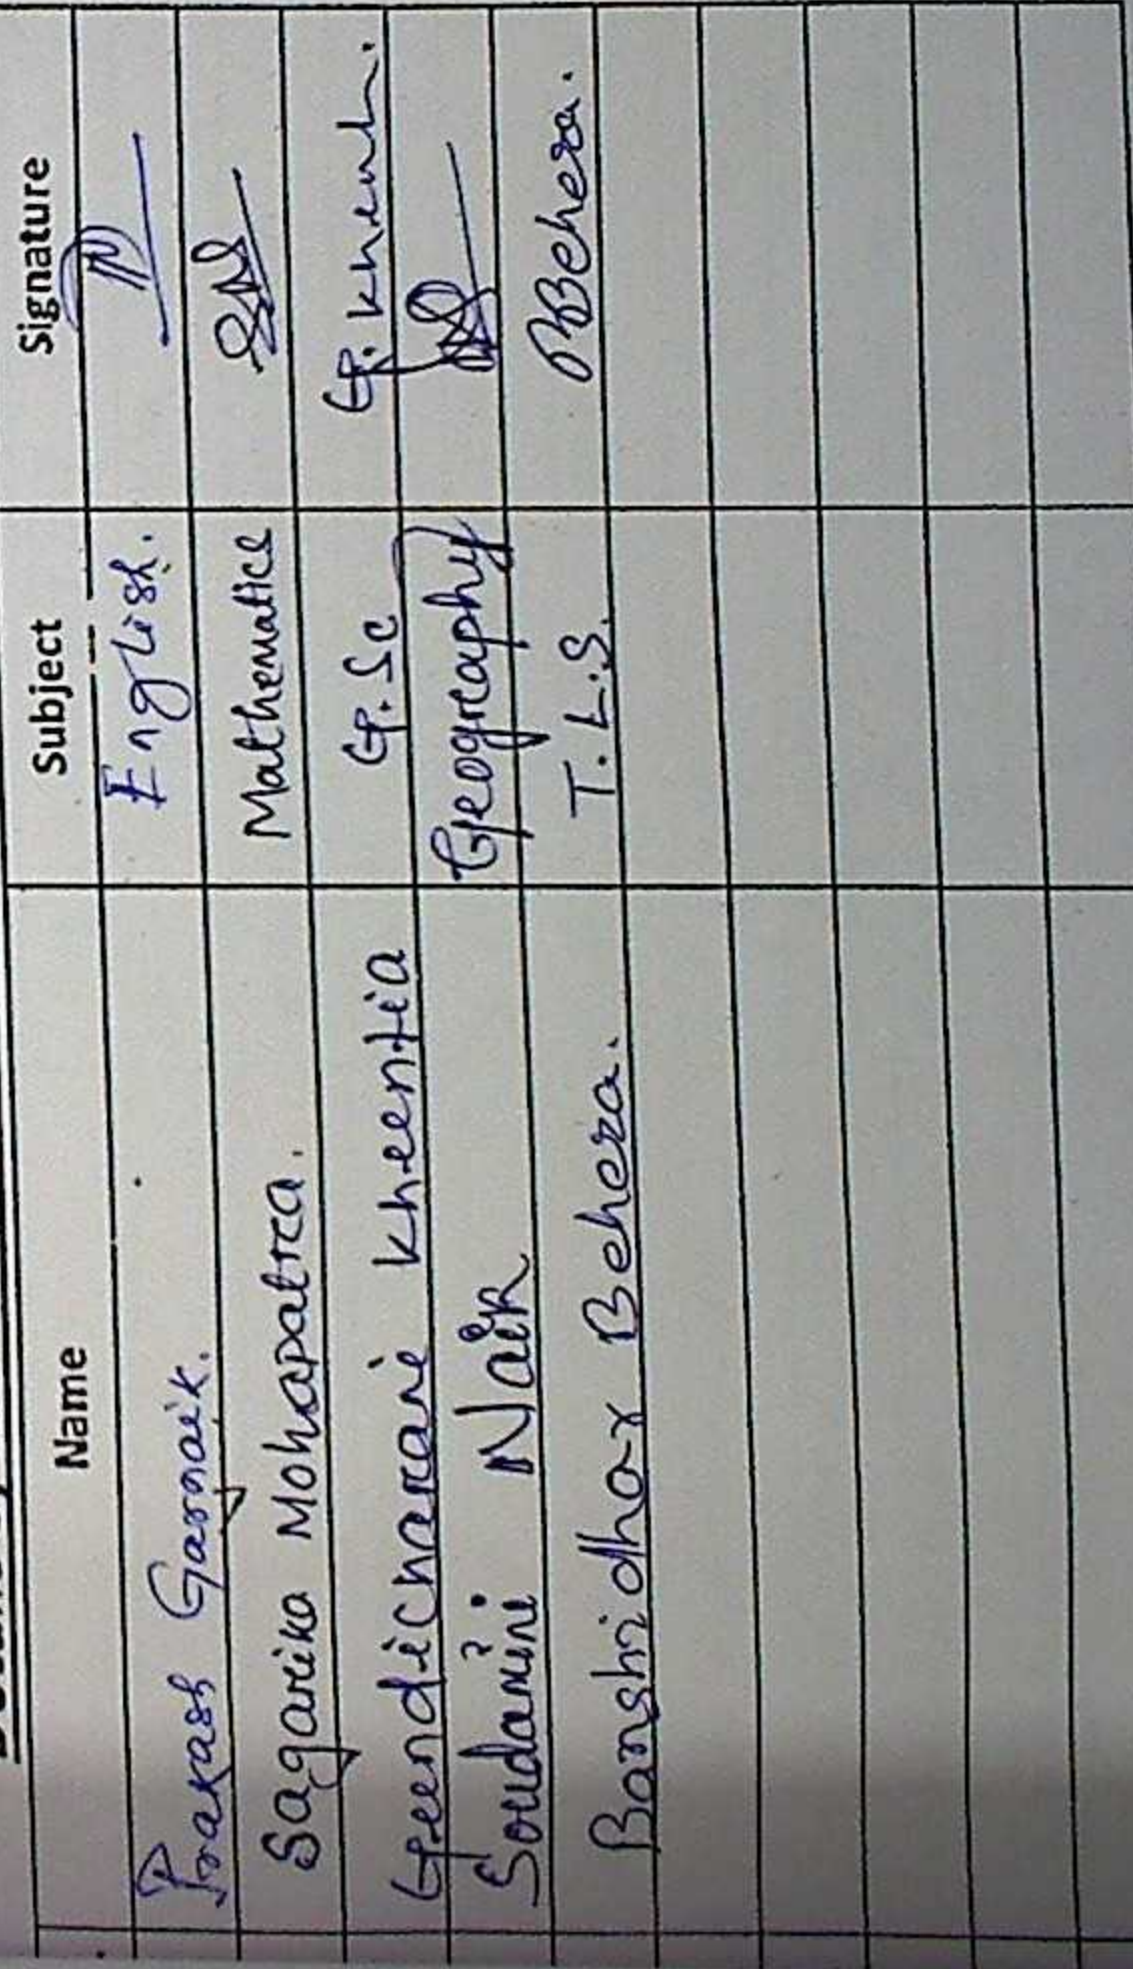 Name Subject Signature
Prakash Garnaik. English.
Sagarika Mohapatra. Mathematics
G. Sc G. Khunt.
Soudamini Naik Geography
Banshidhar Behera. T.L.S. BBehera.